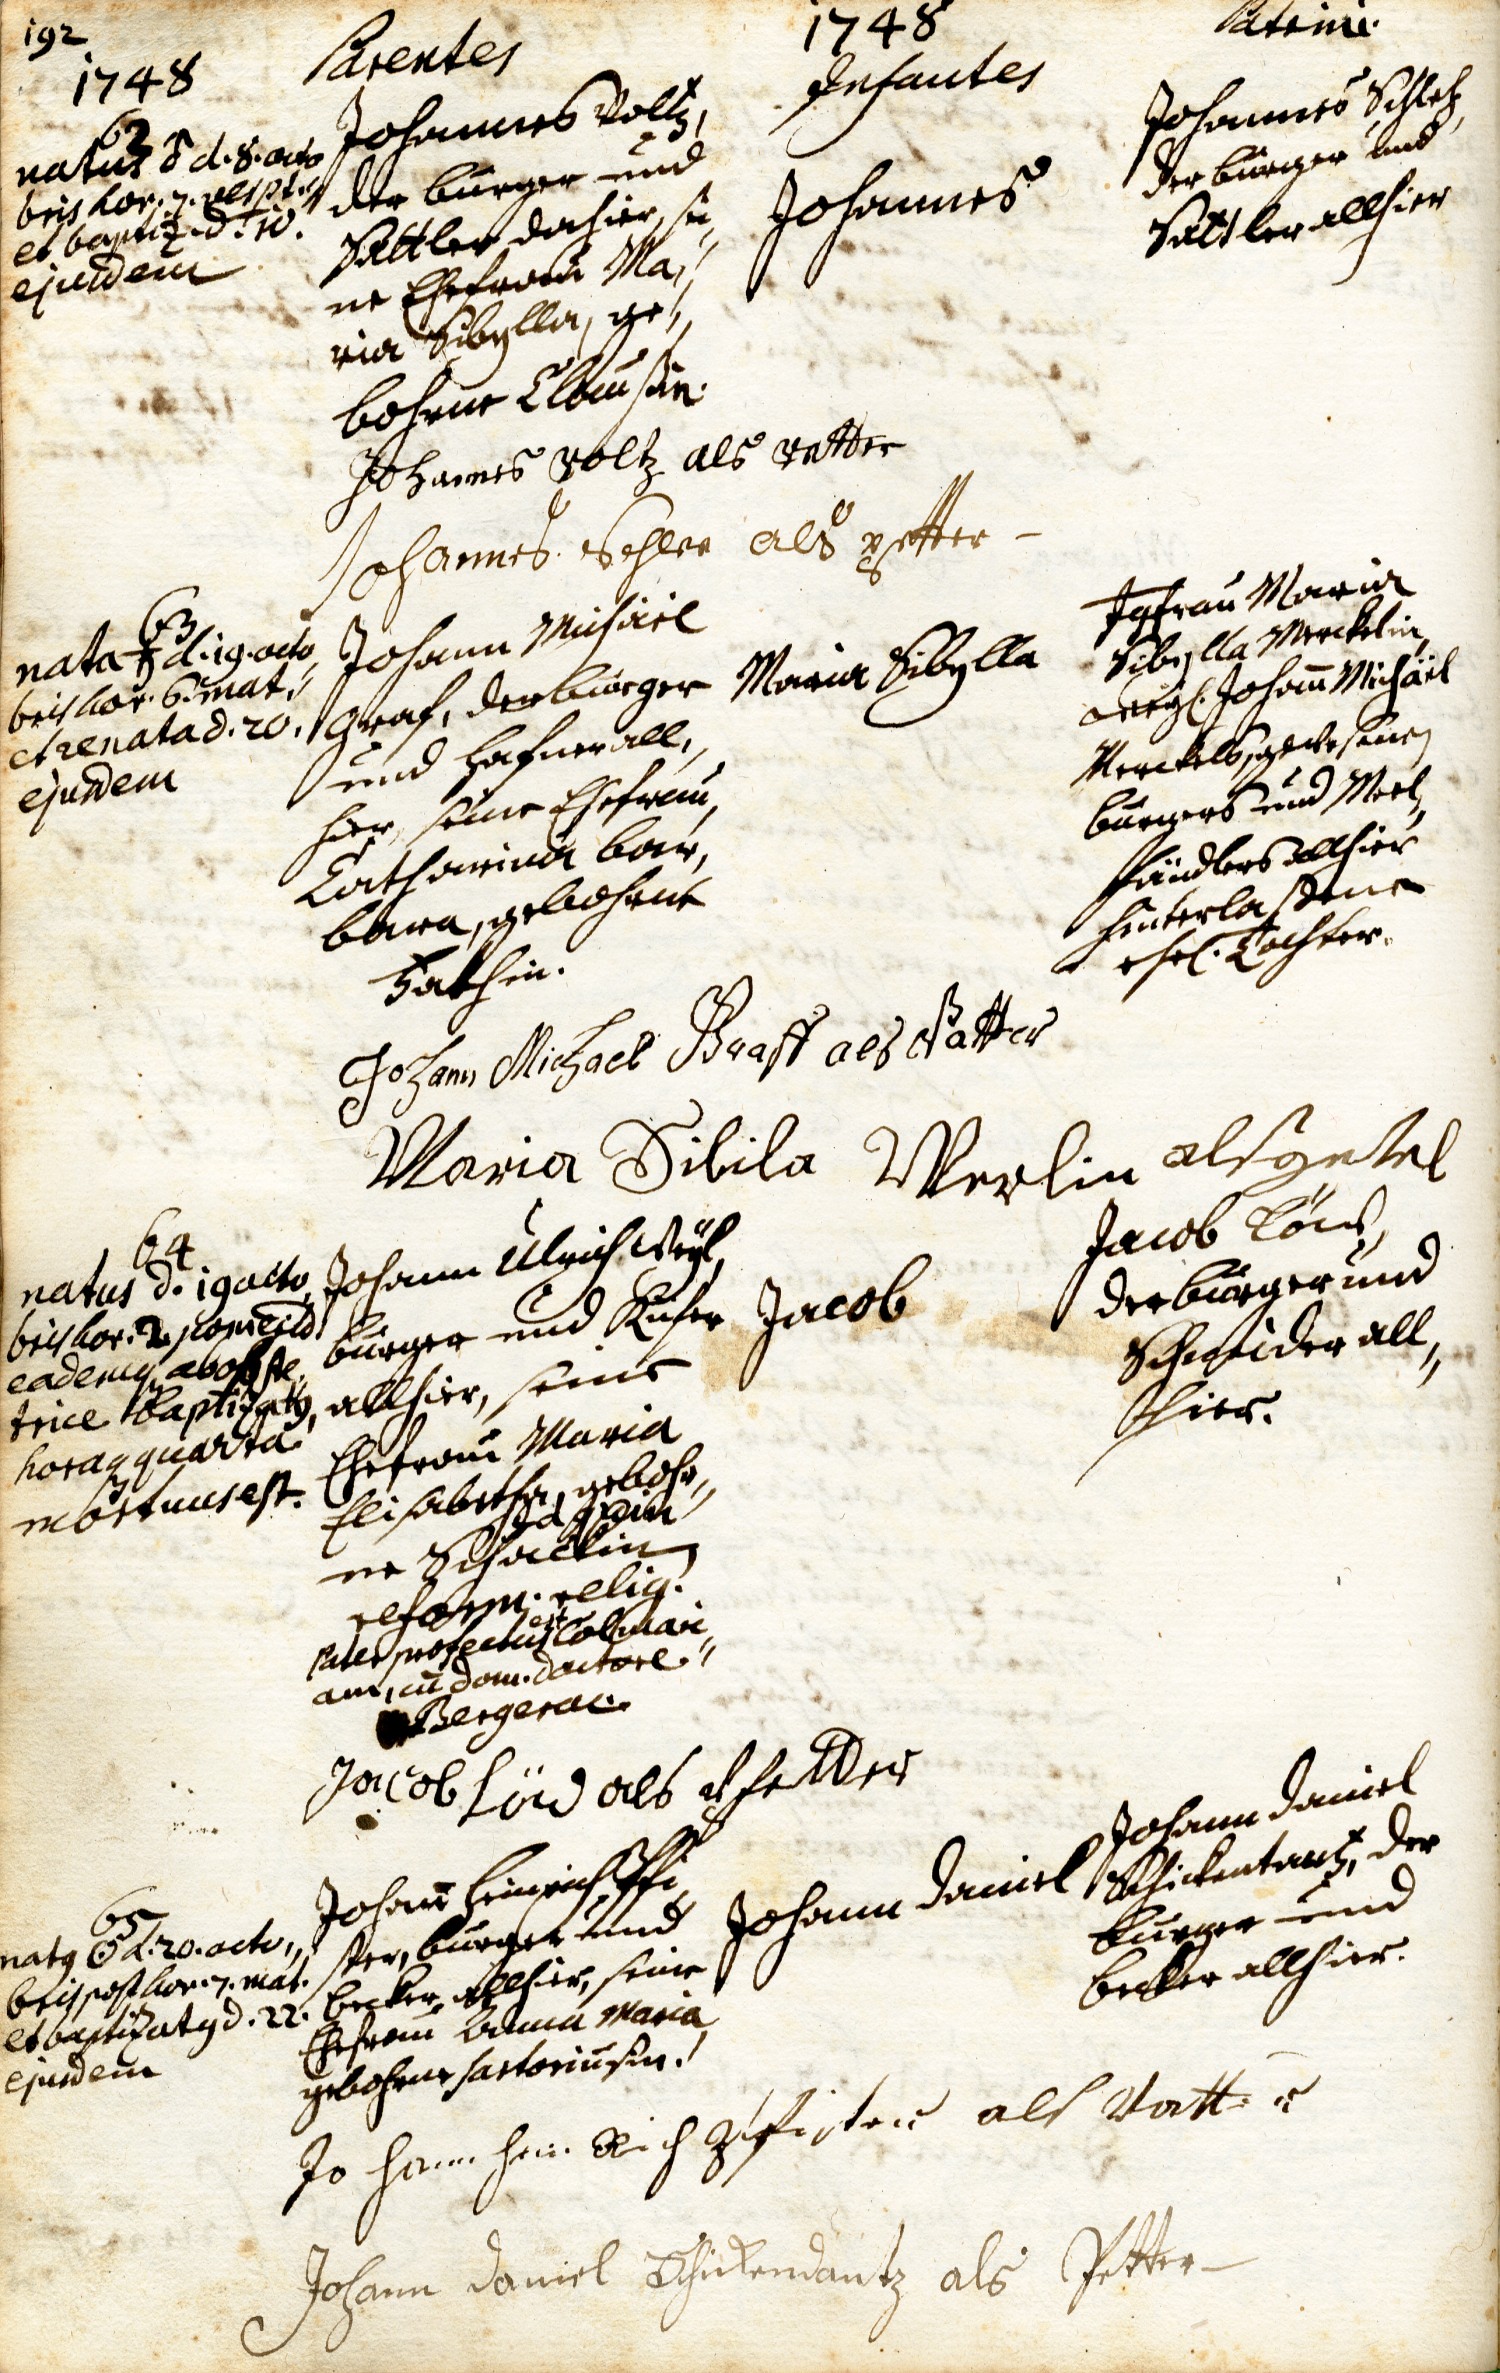 192
1748
Parentes
1748
Infantes
Patrini.
62
natus d. 8. octo
bris hor. 7. vesp.
et baptiz. d. 10.
ejusdem
Johannes Voltz,
der burger und
Sattler dahier, sei,,
ne Ehefrau Ma,,
ria Sibylla, ge,,
bohrne Claussin.
Johannes
Johannes
der burger und
Sattler allhier
Johannes Voltz als vatter
Johannes als pfetter
63
nata d. 19. octo,,
bris hor. 6. mat.
et renata d. 20.
ejusdem
Johann Michäel
Graf, der burger
und hafner all,,
hier, seine Ehefrau,
Catharina bar,,
bara, gebohrne
Maria Sibylla
Jgfrau Maria
Sibylla Merckelin,
Johann Michäel
Merckels, gewesenen
burgers und Meel,,
händlers allhier
hinterlassene
ehel. Tochter.
Johann Michael Graff als Vatter
Maria Sibila Merlin als getel
64
natus d. 19 octo,,
bris hor. 2. pomerid.
eademq. ab obste,,
trice baptizatq,
horaq quarta
mortuus est.
Johann Ulrich Weyl,
burger und Küfer
allhier, seine
Ehefrau Maria
Elisabetha, gebohr,,
ne
reform. relig.
Pater profectus est Colmari,,
am, cū dom. doctore
Bergerac.
Jacob
Jacob Löw,
der burger und
Schneider all,,
hier.
Jacob als pfetter
65
natq d. 20. octo,,
bris post hor. 7. mat.
et baptizatq d. 22.
ejusdem
Johann Heinrich Pfi,,
ster, burger und
becker allhier, seine
Ehefrau Anna Maria
gebohrne Sartoriussin.
Johann Daniel
Johann Daniel
Schickentantz, der
burger und
becker allhier.
Johann Heinrich Pfister als Vatter
Johann Daniel Schickendantz als Petter